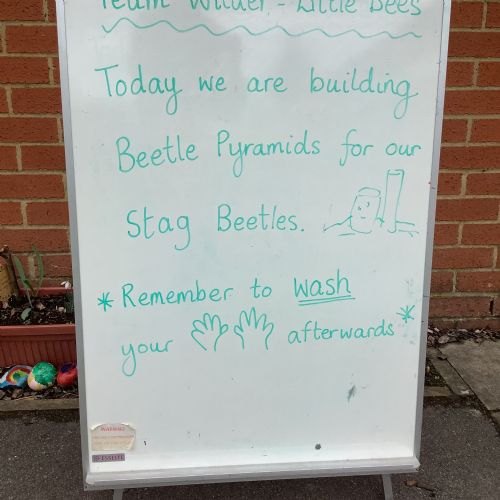 Team Wilder - Little Bees
Today we are building
Beetle Pyramids for our
Stag Beetles.
*Remember to wash
your afterwards*
WARNING